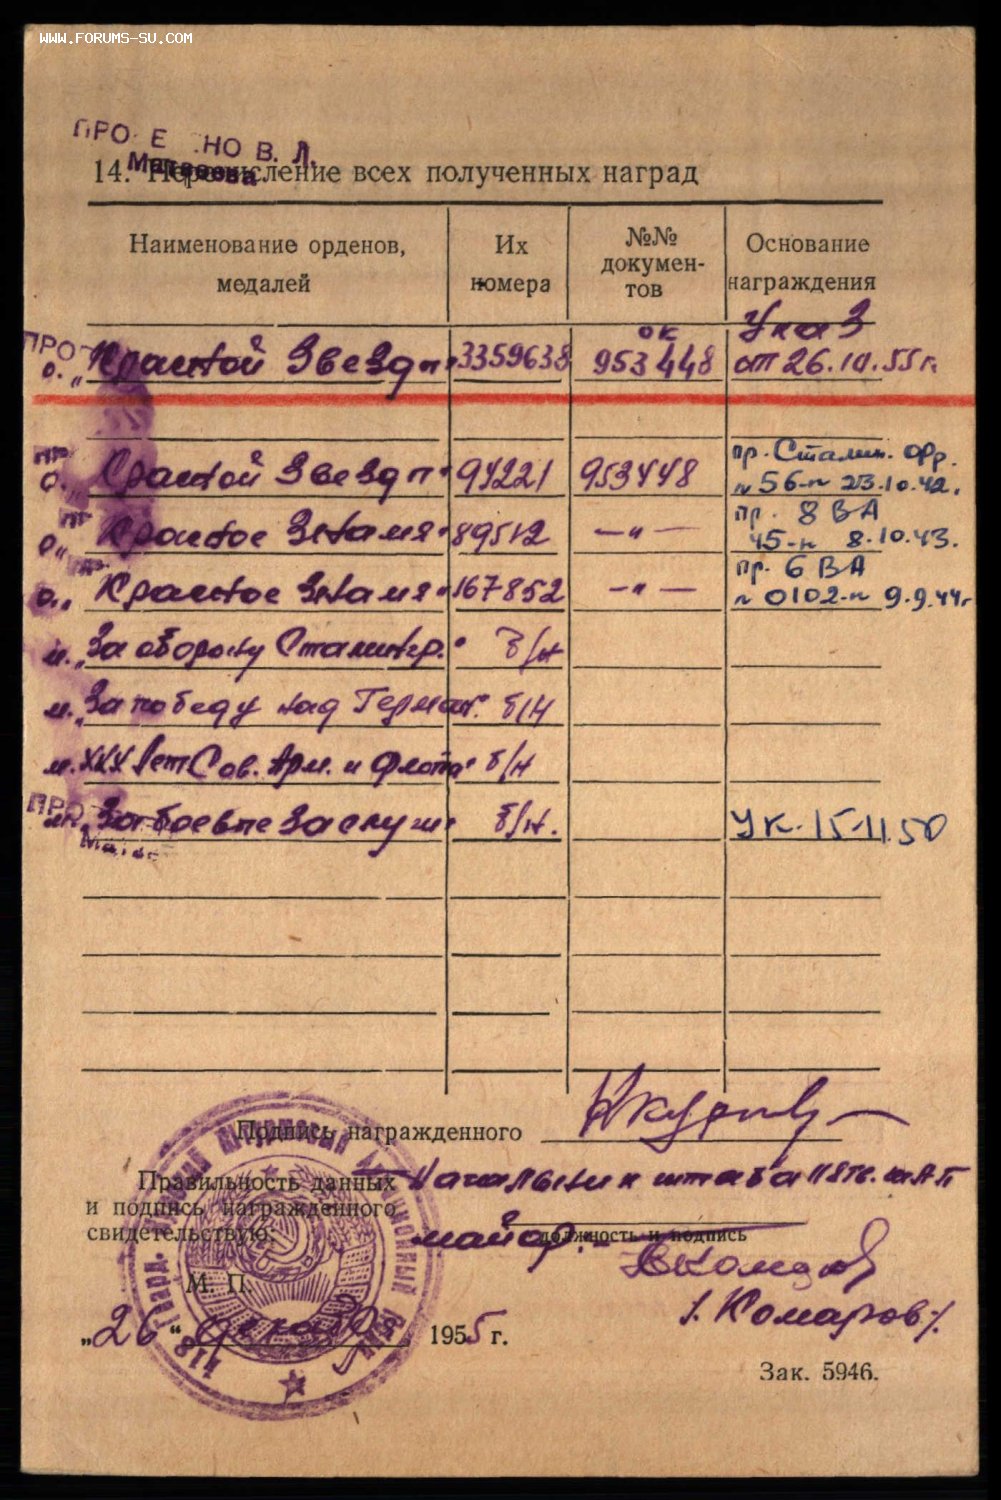 WWW.FORUMS-SU.COM
ПРО Е НО В. Л.
Матвеева
14. Перечисление всех полученных наград
Наименование орденов, медалей
Их номера
№№ документов
Основание награждения
ПРО
о. „Красной Звезды" 3359638 ок 953448 Указ от 26.10.55 г.
о. „Красной Звезды" 94221 953448 пр. Сталин. фр. № 56-н 23.10.42.
о. „Красное Знамя" 89512 —"— пр. 8 ВА 45-н 8.10.43.
о. „Красное Знамя" 167852 —"— пр. 6 ВА № 0102-н 9.9.44г
м. „За оборону Сталингр." б/н
м. „За победу над Герман". б/н
м. XXX лет Сов. Арм. и Флота" б/н
ПРО
м. „За боевые заслуги" б/н. Ук. 15.11.50
Подпись награжденного
Правильность данных
и подпись награжденного
свидетельствую:
Начальник штаба 118 гв.
майор
должность и подпись
М. П.
/. Комаров /.
„26" декабря 1955 г.
118 Гвард.
Зак. 5946.